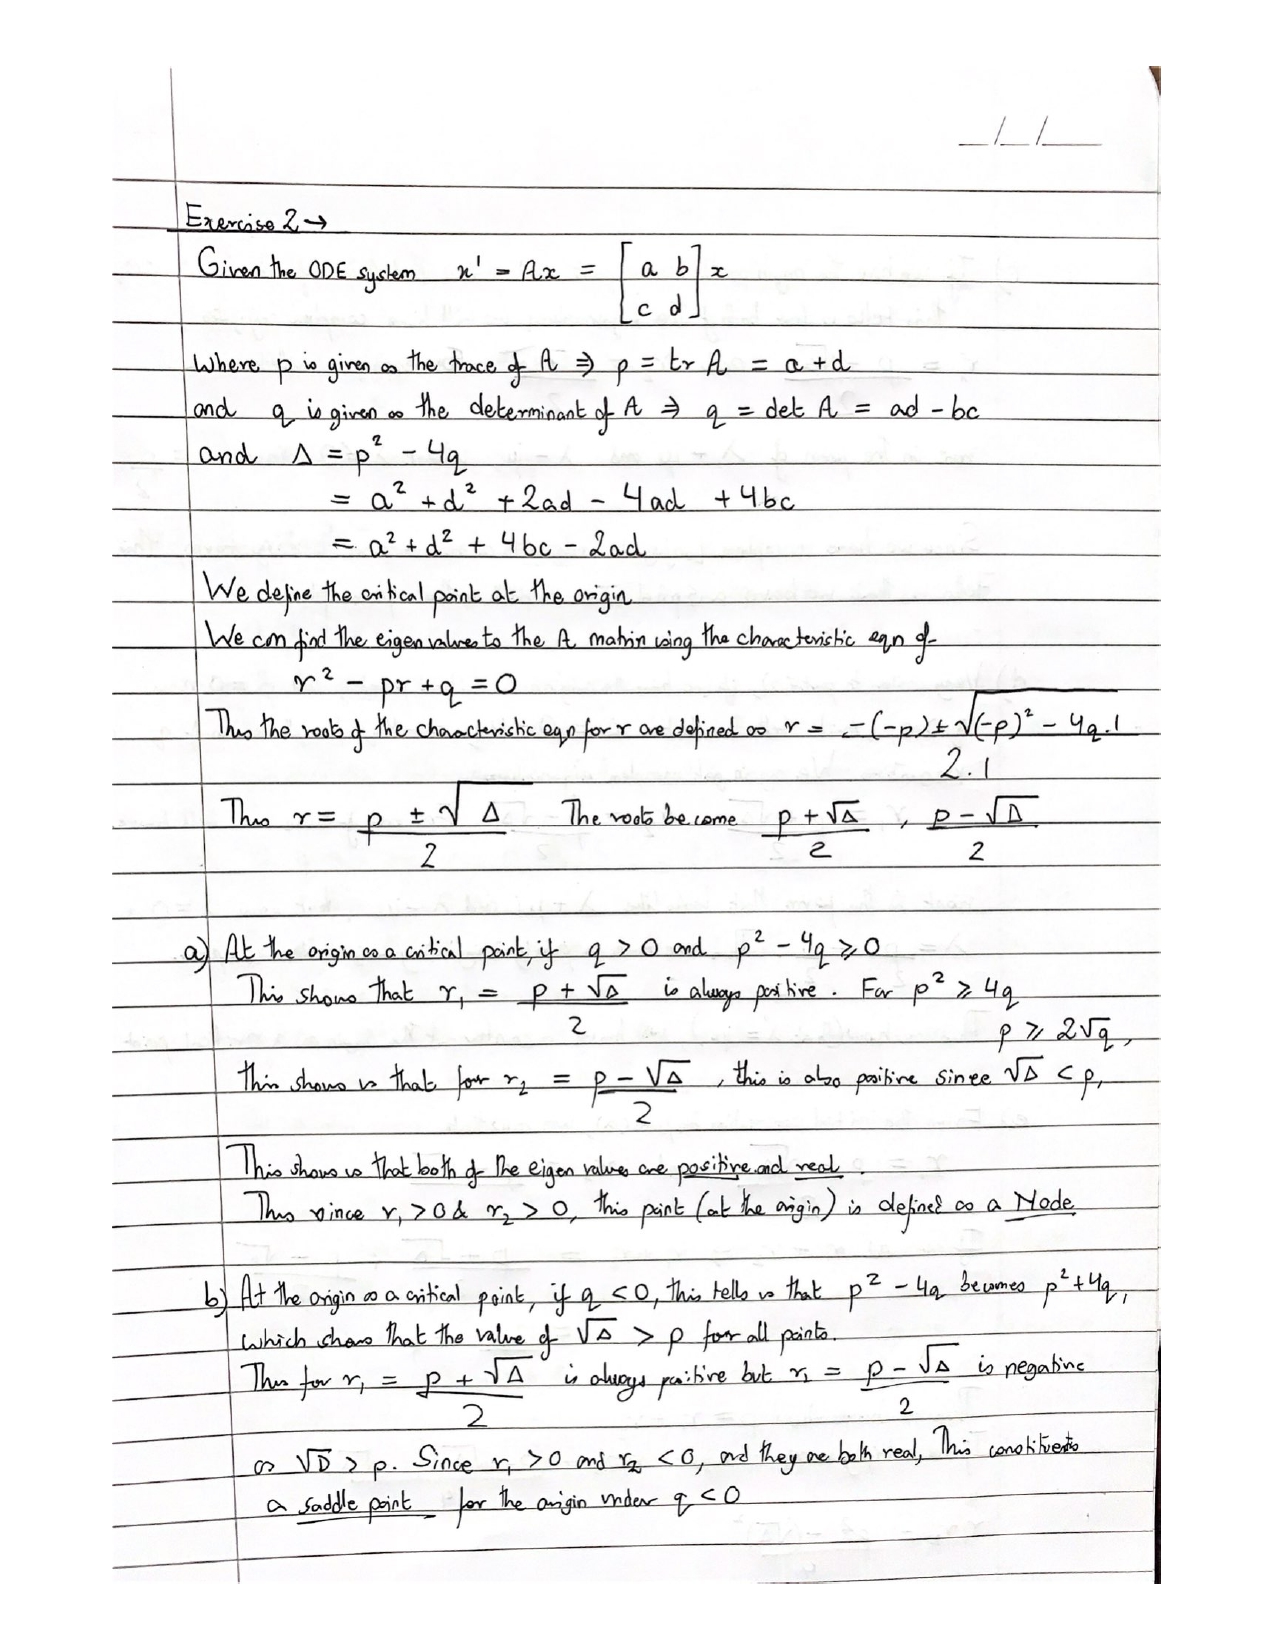 _/_/_
Exercise 2 →
Given the ODE system x' = Ax = [a b; c d] x
Where p is given as the trace of A ⇒ p = tr A = a + d
and q is given as the determinant of A ⇒ q = det A = ad - bc
and Δ = p² - 4q
= a² + d² + 2ad - 4ad + 4bc
= a² + d² + 4bc - 2ad
We define the critical point at the origin
We can find the eigen values to the A matrix using the characteristic eqn of
r² - pr + q = 0
Thus the roots of the characteristic eqn for r are defined as r = (-(-p) ± √((-p)² - 4q.1))/2.1
Thus r = (p ± √Δ)/2 The roots become (p + √Δ)/2 , (p - √Δ)/2
a) At the origin as a critical point, if q > 0 and p² - 4q ≥ 0
This shows that r₁ = (p + √Δ)/2 is always positive. For p² ≥ 4q
p ≥ 2√q,
This shows us that for r₂ = (p - √Δ)/2 , this is also positive since √Δ < p,
This shows us that both of the eigen values are positive and real.
Thus since r₁ > 0 & r₂ > 0, this point (at the origin) is defined as a Node
b) At the origin as a critical point, if q < 0, this tells us that p² - 4q becomes p² + 4q,
which shows that the value of √Δ > p for all points.
Thus for r₁ = (p + √Δ)/2 is always positive but r₂ = (p - √Δ)/2 is negative
as √D > p. Since r₁ > 0 and r₂ < 0, and they are both real, This constitutes
a saddle point for the origin under q < 0